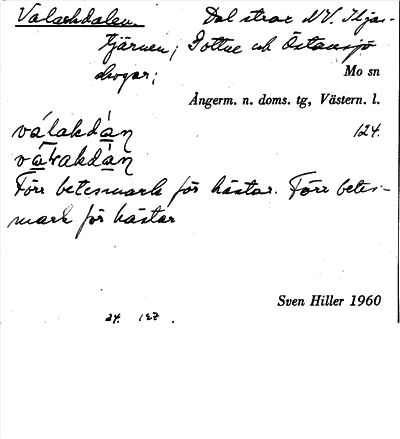 Valackdalen Dal strax NV. Iljas-
tjärnen; Gottne och Östansjö
skogar;
Mo sn
Ångerm. n. doms. tg, Västern. l.
válakdàn 124.
vàlakdàn
Förr betesmark för hästar. Förr betes-
mark för hästar
Sven Hiller 1960